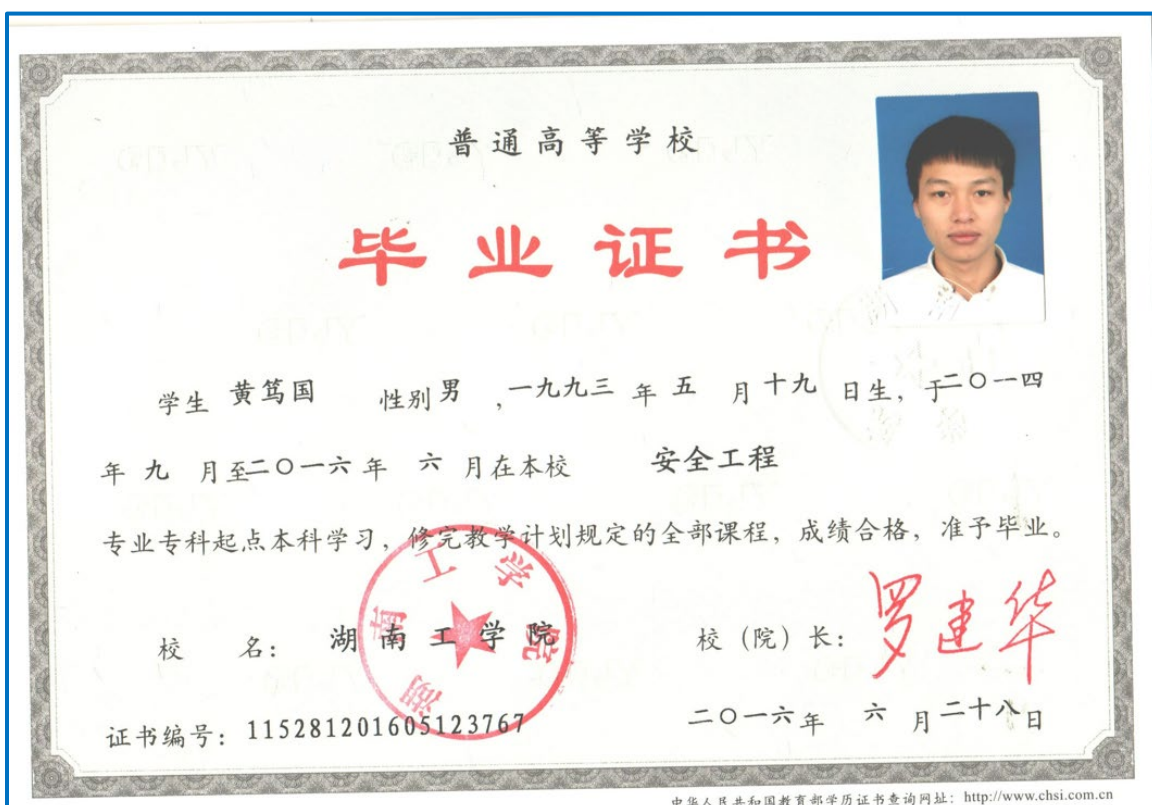 普通高等学校
毕业证书
学生 黄笃国 性别 男 ,一九九三 年 五 月 十九 日生, 于二〇一四
年 九 月至二〇一六年 六 月在本校 安全工程
专业专科起点本科学习, 修完教学计划规定的全部课程, 成绩合格, 准予毕业。
校 名: 湖南工学院 校 (院) 长: 罗建华
湖南工学院
证书编号: 115281201605123767 二〇一六年 六 月二十八日
中华人民共和国教育部学历证书查询网址: http://www.chsi.com.cn